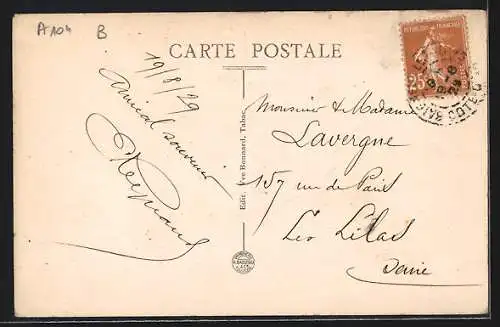 A 104
B
CARTE POSTALE
19/8/29
Amical souvenir
Edit. Vve Bonnard, Tabac
REPUBLIQUE FRANÇAISE
25
Monsieur & Madame
Lavergne
157 rue de Paris
Les Lilas
Seine